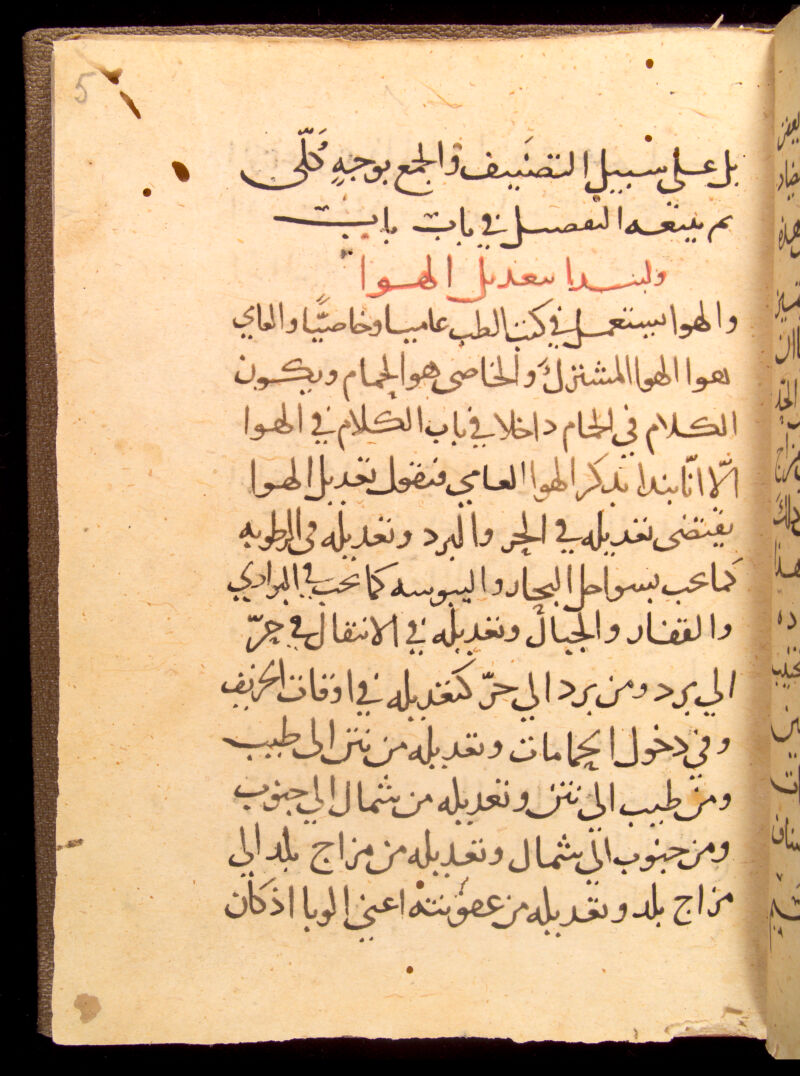 5
بل على سبيل التصنيف والجمع بوجهٍ كُلّى
ثم يتبعه التفصيل في باب باب
ولنبدا بتعديل الهوا
والهوا يستعمل في كتب الطب عاميا وخاصيًّا والعامي
هو الهوا المشترك والخاصى هو الحمام ويكون
الكلام في الحمام داخلا في باب الكلام في الهوا
الّا انّا نبدا بذكر الهوا العامي فنقول تعديل الهوا
يقتضى تعديله في الحر والبرد وتعديله في الرطوبه
كما يجب بسواحل البحار واليبوسه كما يجب في البراري
والقفار والجبال وتعديله في الانتقال في حرّ
الي برد ومن برد الي حرّ كتعديله في اوقات الخريف
وفي دخول الحمامات وتعديله من نتن الى طيب
ومن طيب الي نتن وتعديله من شمال الي جنوب
ومن جنوب الي شمال وتعديله من مزاج بلد الي
مزاج بلد وتعديله من عفونته اعني الوبا اذ كان